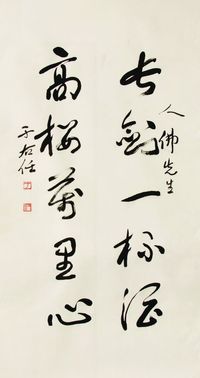 人佛先生
长剑一杯酒
高楼万里心
于右任